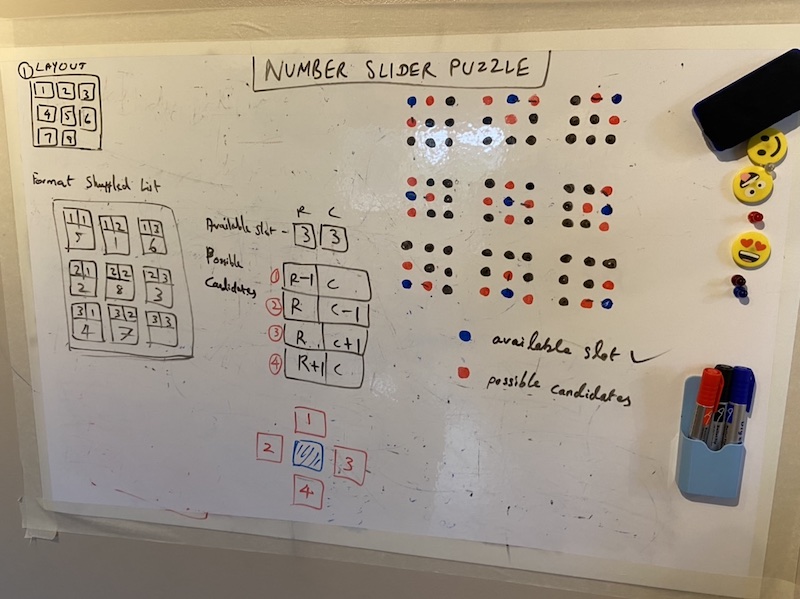 NUMBER SLIDER PUZZLE
1 LAYOUT
1 2 3
4 5 6
7 8
Format Shuffled List
1 1 1 2 1 3
5 1 6
2 1 2 2 2 3
2 8 3
3 1 3 2 3 3
4 7
R C
Available slot - 3 3
Possible
Candidates
1 R-1 C
2 R C-1
3 R C+1
4 R+1 C
1
2 3
4
available slot
possible candidates